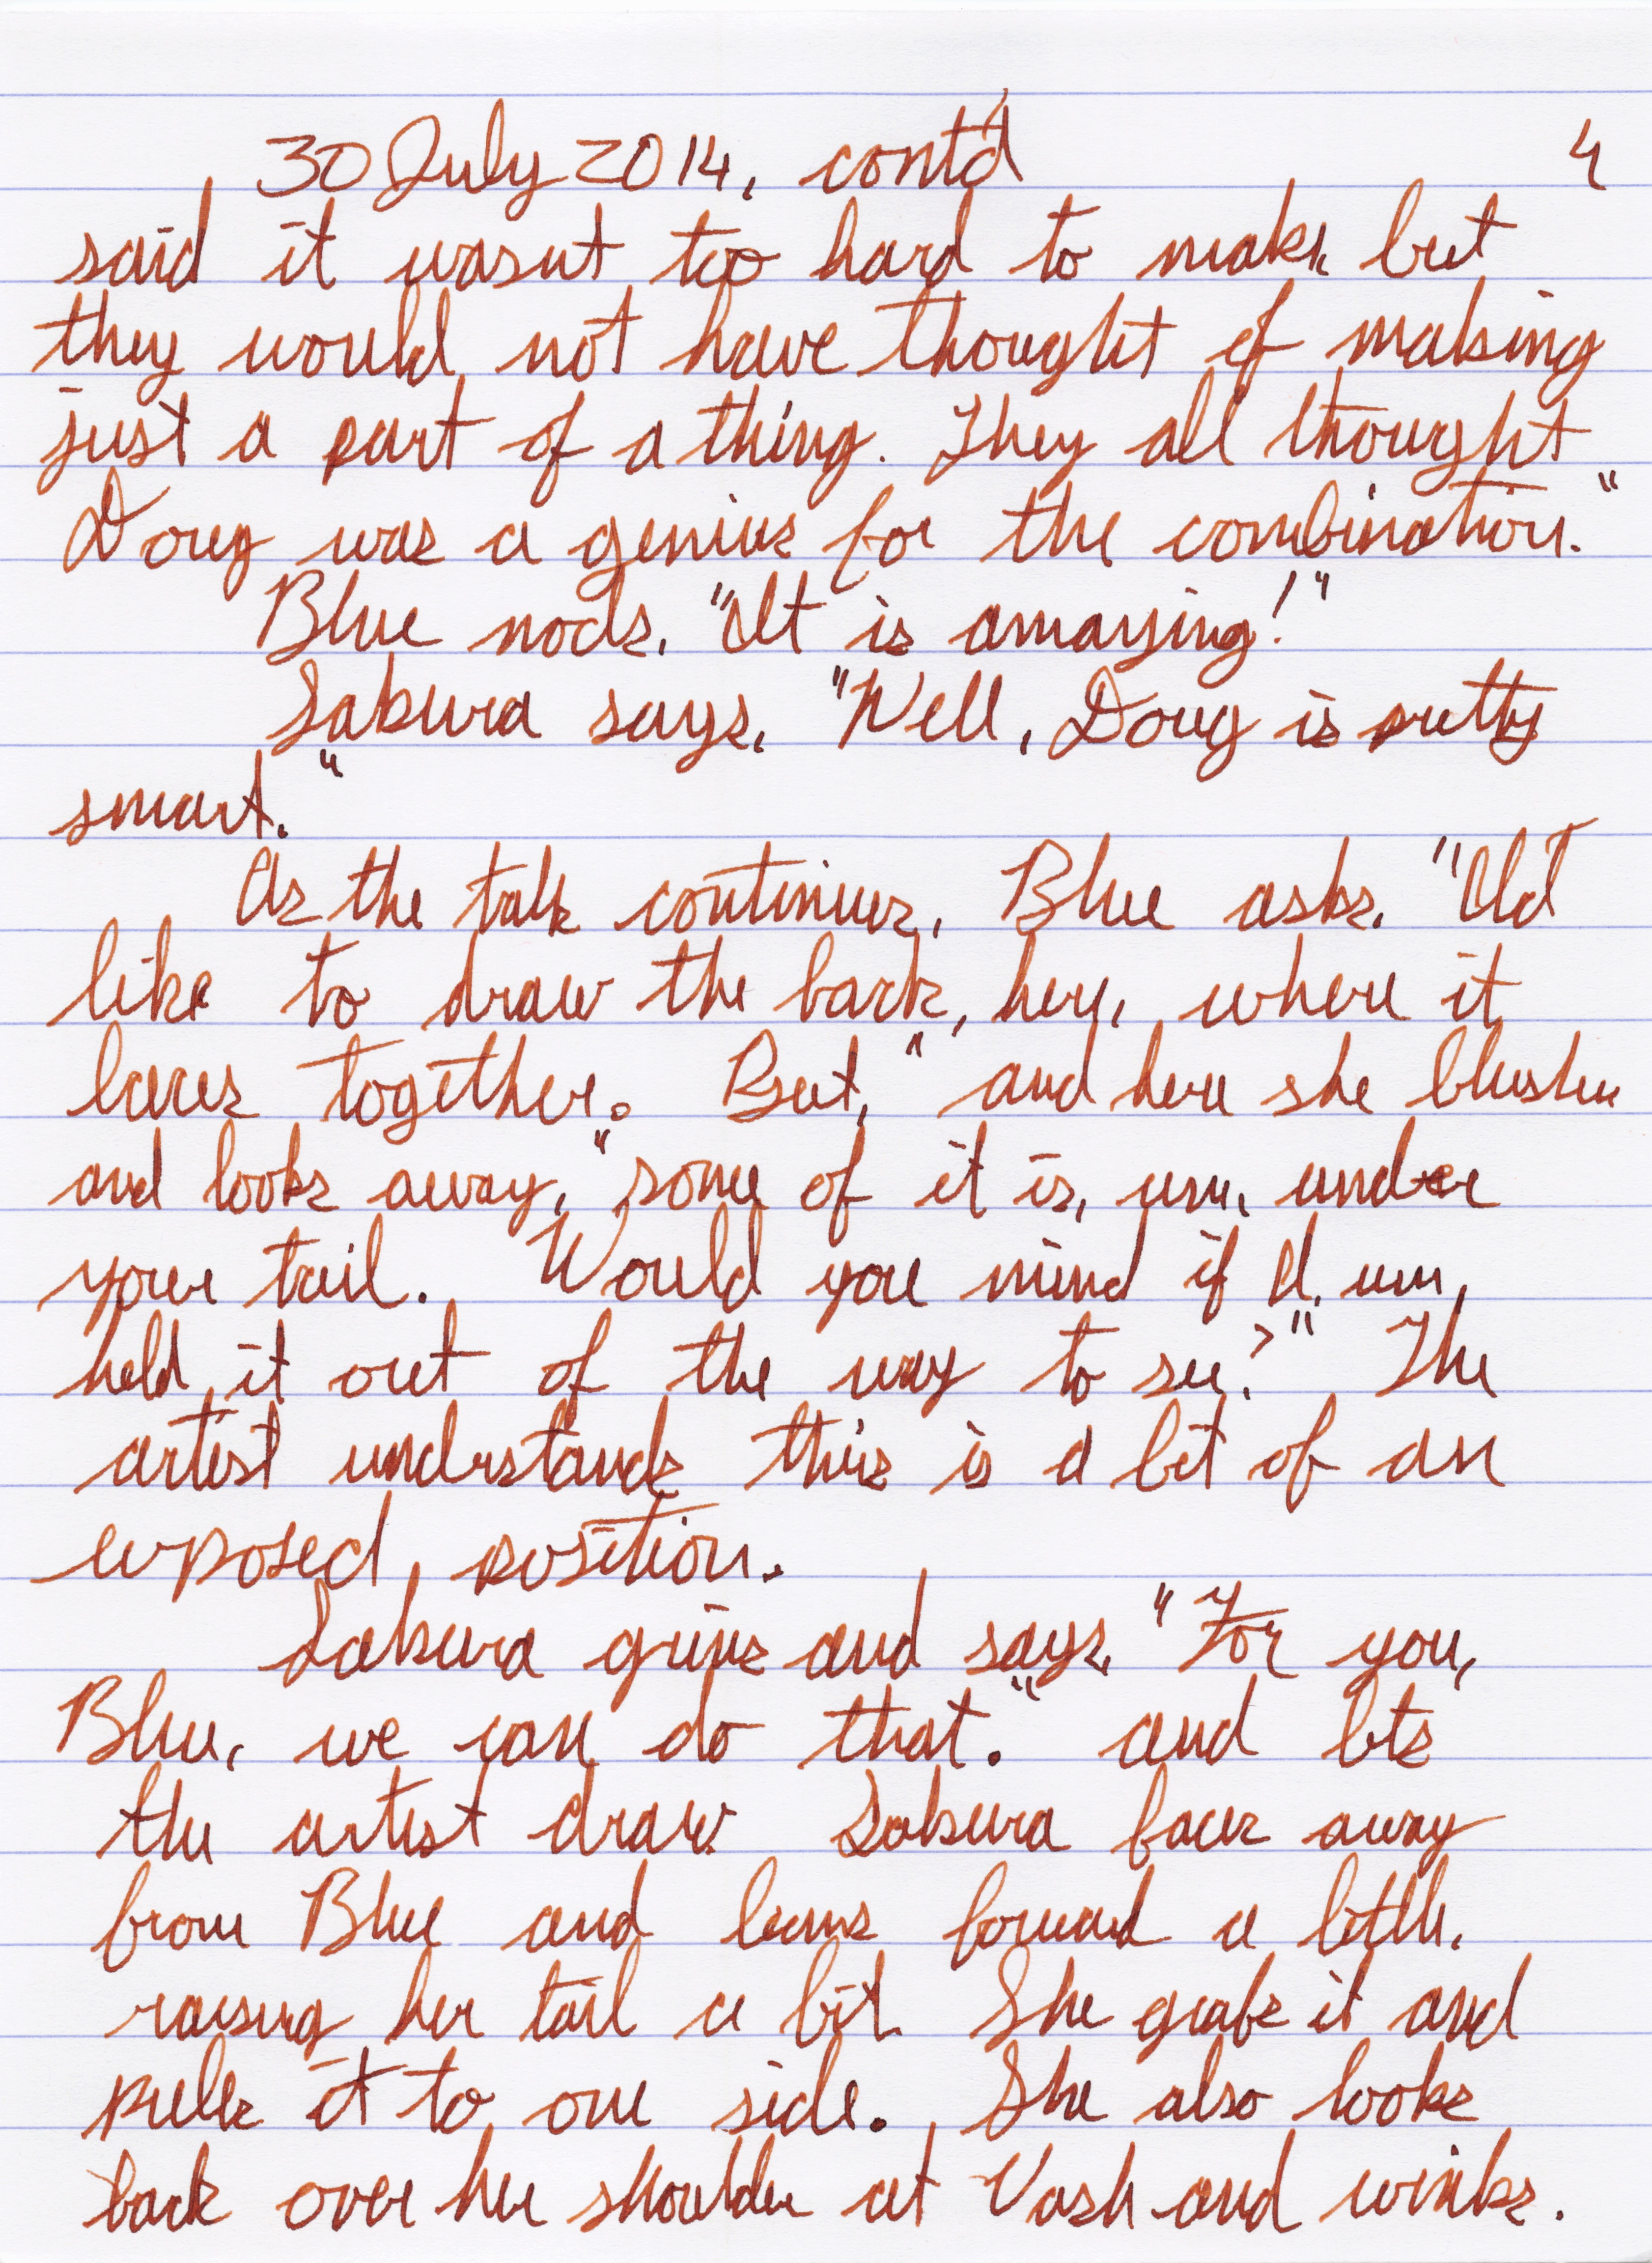 30 July 2014, cont'd 4
said it wasn't too hard to make, but
they would not have thought of making
just a part of a thing. They all thought
Doug was a genius for the combination."
Blue nods, "It is amazing!"
Sakura says, "Well, Doug is pretty
smart."
As the talk continues, Blue asks, "I'd
like to draw the back, here, where it
laces together. But," and here she blushes
and looks away, "some of it is, um, under
your tail. Would you mind if I, um,
held it out of the way to see?" The
artist understands this is a bit of an
exposed position.
Sakura grins and says, "For you,
Blue, we can do that." and lets
the artist draw. Sakura faces away
from Blue and leans forward a little,
raising her tail a bit. She grabs it and
pulls it to one side. She also looks
back over her shoulder at Vash and winks.